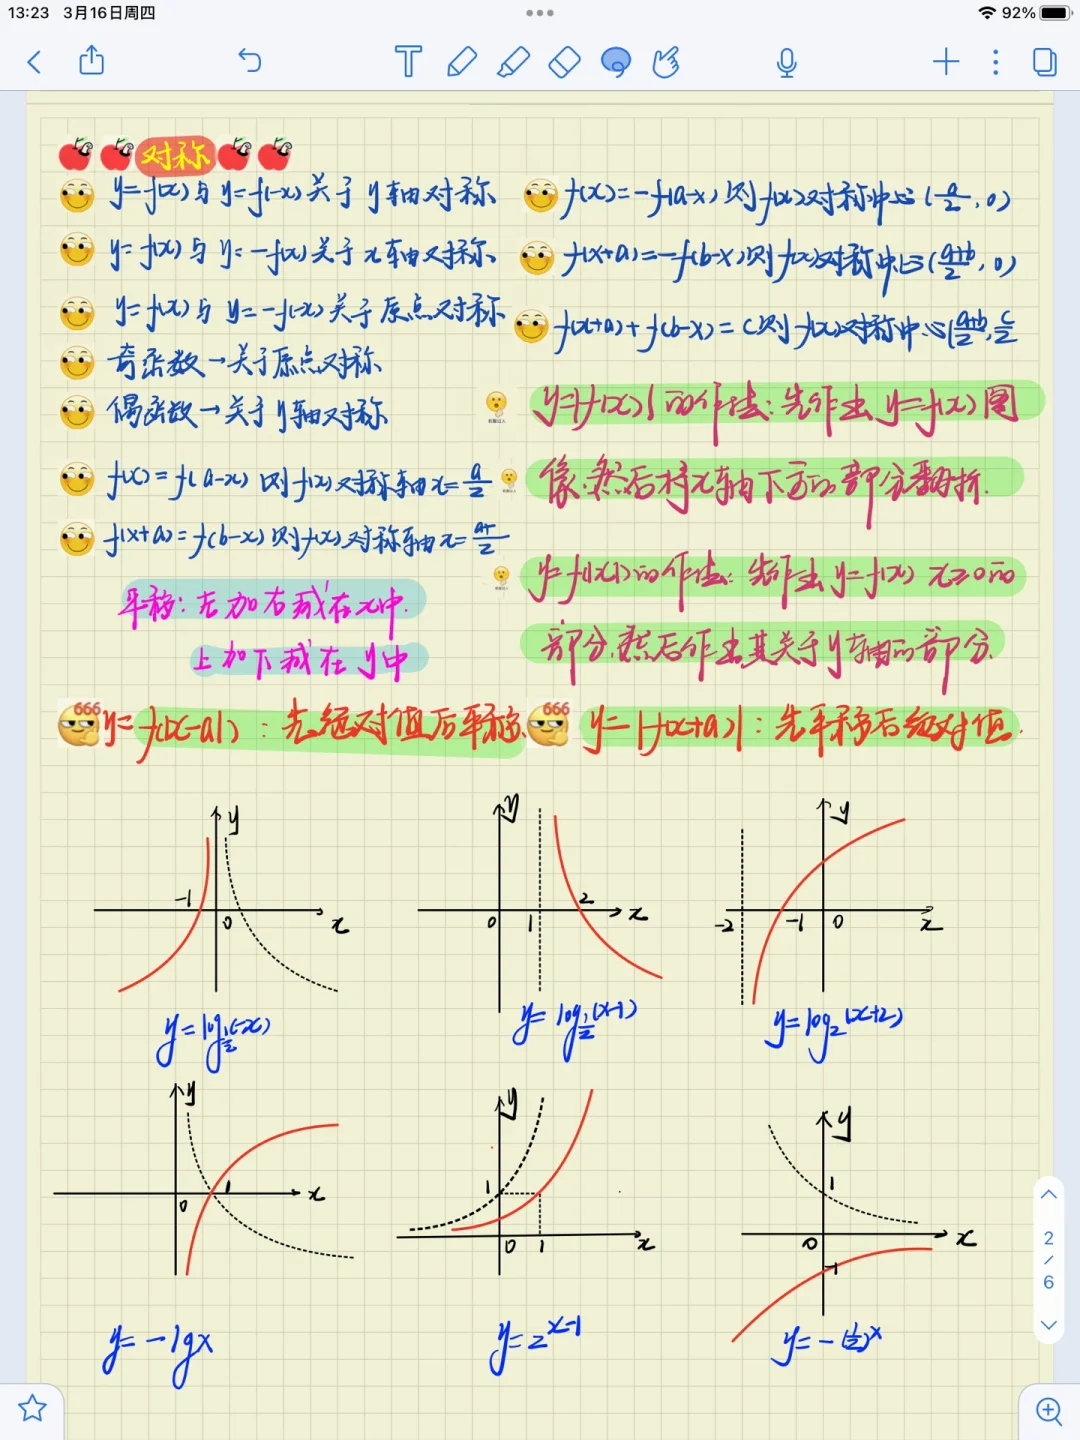 13:23 3月16日周四
92%
对称
y=f(x)与y=f(-x)关于y轴对称
y=f(x)与y=-f(x)关于x轴对称
y=f(x)与y=-f(-x)关于原点对称
奇函数→关于原点对称
偶函数→关于y轴对称
f(x)=f(a-x)则f(x)对称轴x=a/2
f(x+a)=f(b-x)则f(x)对称轴x=
f(x)=-f(a-x)则f(x)对称中心(a/2,0)
f(x+a)=-f(b-x)则f(x)对称中心(a+b/2,0)
f(x+a)+f(b-x)=c则f(x)对称中心(a+b/2,c/2
y=|f(x)|的作法:先作出y=f(x)图
像,然后将x轴下方的部分翻折.
y=f(|x|)的作法:先作出y=f(x) x≥0的
部分,然后作出其关于y轴的部分.
平移:左加右减在x中.
上加下减在y中
666 y=f(|x-a|):先绝对值后平移.
666 y=|f(x+a)|:先平移后绝对值.
y
-1
0
x
y=log½(-x)
y
2
0
1
x
y=log½(x-1)
y
-2
-1
0
x
y=log₂(x+2)
y
1
0
x
y=-lgx
y
1
0
1
x
y=2^(x-1)
y
1
0
x
-1
y=-(½)^x
2
/
6